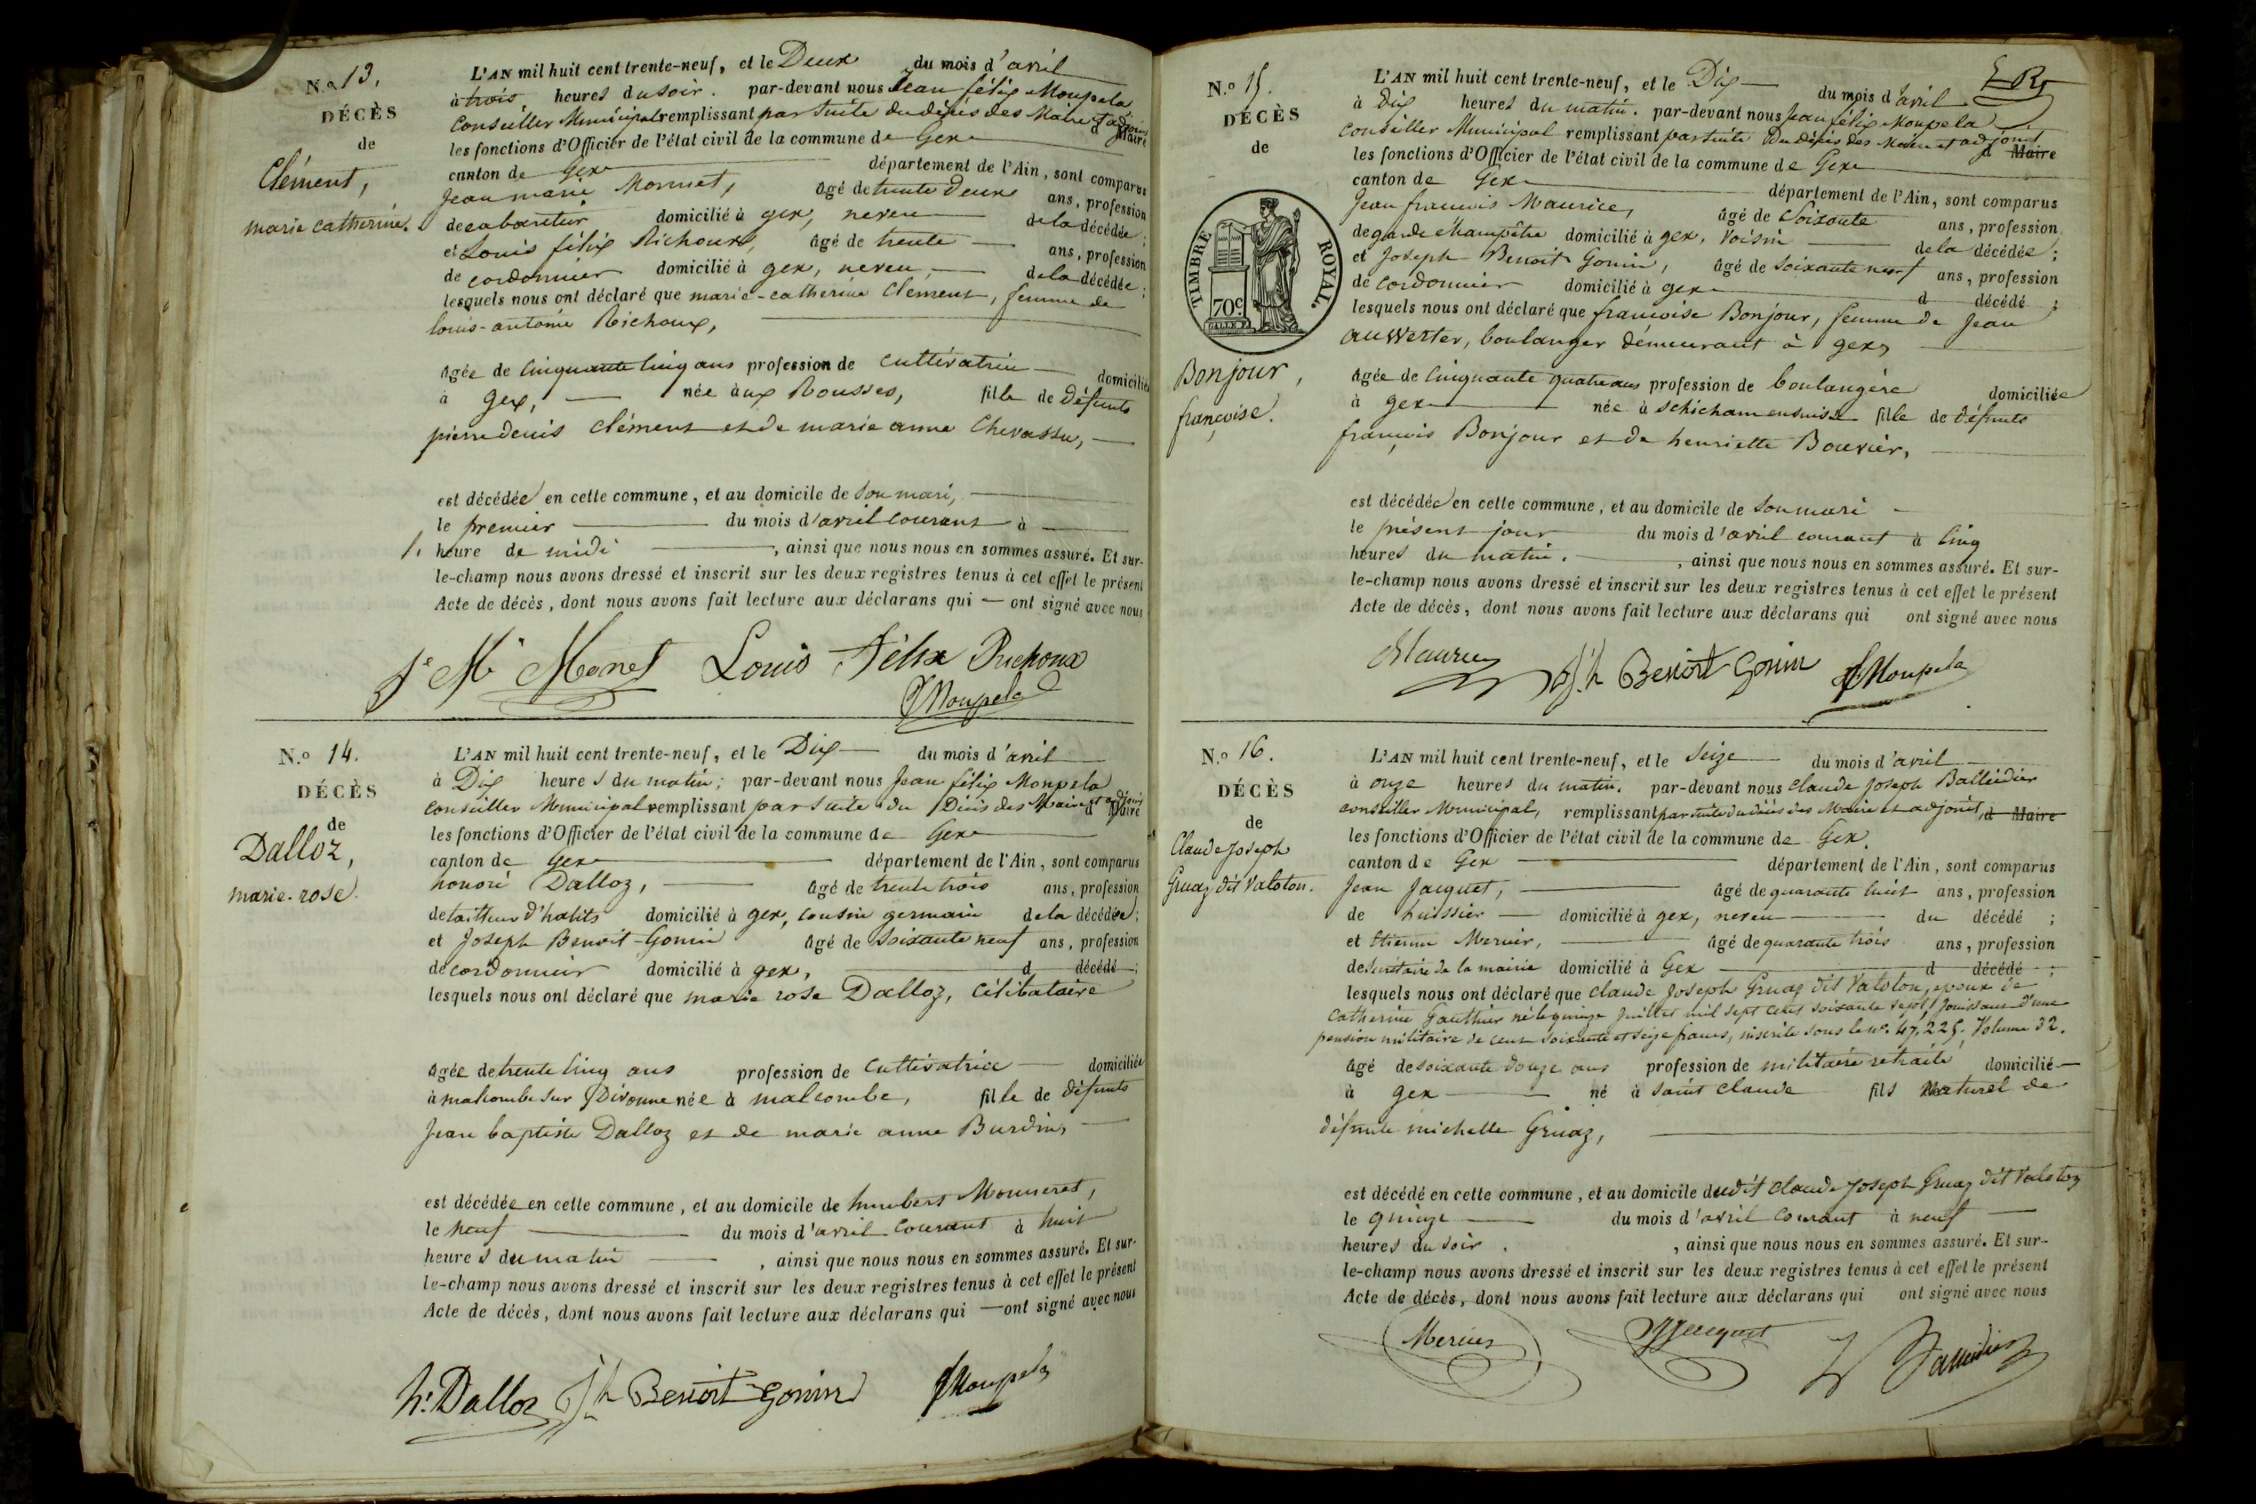 N.º 13.
DÉCÈS
de
Clément,
marie catherine.
L'AN mil huit cent trente-neuf, et le Deux du mois d'avril
à trois heures du soir. par-devant nous Jean félix Moupela
Conseiller Municipal remplissant par suite du décès des Maire et adjoint d Maire
les fonctions d'Officier de l'état civil de la commune de Gex
canton de Gex département de l'Ain, sont comparus
Jean marie Monnet, âgé de trente Deux ans, profession
de cabaretier domicilié à gex, neveu de la décédée;
et Louis félix Richoux, âgé de trente ans, profession
de cordonnier domicilié à gex, neveu, de la décédée;
lesquels nous ont déclaré que marie-catherine Clement, femme de
louis-antoine Richoux,
âgée de cinquante cinq ans profession de cultivatrice domiciliée
à gex, née aux Rousses, fille de défunts
pierre denis Clément et de marie anne Chevassu,
est décédée en cette commune, et au domicile de son mari,
le premier du mois d'avril courant à
1. heure de midi, ainsi que nous nous en sommes assuré. Et sur-
le-champ nous avons dressé et inscrit sur les deux registres tenus à cet effet le présent
Acte de décès, dont nous avons fait lecture aux déclarans qui — ont signé avec nous
Je Mie Monet Louis Félix Richoux
Moupela
N.º 14.
DÉCÈS
de
Dalloz,
marie-rose.
L'AN mil huit cent trente-neuf, et le Dix du mois d'avril
à Dix heures du matin; par-devant nous Jean félix Moupela
conseiller Municipal remplissant par suite du Décès des Maire et adjoint d Maire
les fonctions d'Officier de l'état civil de la commune de Gex
canton de Gex département de l'Ain, sont comparus
honoré Dalloz, âgé de trente trois ans, profession
de tailleur d'habits domicilié à gex, cousin germain de la décédée;
et Joseph Benoit-Gonin âgé de soixante neuf ans, profession
de cordonnier domicilié à gex, d décédé;
lesquels nous ont déclaré que marie rose Dalloz, célibataire
âgée de trente cinq ans profession de Cultivatrice domiciliée
à malcombe sur Divonne née à malcombe, fille de défunts
Jean baptiste Dalloz et de marie anne Burdin,
est décédée en cette commune, et au domicile de humbert Monneret,
le neuf du mois d'avril courant à huit
heures du matin, ainsi que nous nous en sommes assuré. Et sur-
le-champ nous avons dressé et inscrit sur les deux registres tenus à cet effet le présent
Acte de décès, dont nous avons fait lecture aux déclarans qui — ont signé avec nous
h: Dalloz Jh Benoit-Gonin Moupela
N.º 15.
DÉCÈS
de
TIMBRE ROYAL.
70 c
Bonjour,
françoise.
L'AN mil huit cent trente-neuf, et le Dix du mois d'avril
à dix heures du matin. par-devant nous Jean félix Moupela
conseiller Municipal remplissant par suite Du décès des Maire et adjoint d Maire
les fonctions d'Officier de l'état civil de la commune de Gex
canton de Gex département de l'Ain, sont comparus
Jean françois Maurice, âgé de Soixante ans, profession
de garde champêtre domicilié à gex, voisin de la décédée;
et Joseph Benoit Gonin, âgé de soixante neuf ans, profession
de cordonnier domicilié à gex d décédé;
lesquels nous ont déclaré que françoise Bonjour, femme de Jean
auwerter, boulanger demeurant à gex,
âgée de cinquante quatre ans profession de boulangère domiciliée
à gex née à schicham en suisse fille de défunts
françois Bonjour et de henriette Bouvier,
est décédée en cette commune, et au domicile de son mari
le présent jour du mois d'avril courant à cinq
heures du matin., ainsi que nous nous en sommes assuré. Et sur-
le-champ nous avons dressé et inscrit sur les deux registres tenus à cet effet le présent
Acte de décès, dont nous avons fait lecture aux déclarans qui ont signé avec nous
Maurice Jh Benoit Gonin Moupela
N.º 16.
DÉCÈS
de
Claude Joseph
Gruaz dit Valoton.
L'AN mil huit cent trente-neuf, et le seize du mois d'avril
à onze heures du matin. par-devant nous Claude Joseph Balleidier
conseiller Municipal, remplissant par suite du décès des Maire et adjoint, d Maire
les fonctions d'Officier de l'état civil de la commune de Gex.
canton de Gex département de l'Ain, sont comparus
Jean Jacquet, âgé de quarante huit ans, profession
de huissier domicilié à gex, neveu du décédé;
et Etienne Mercier, âgé de quarante trois ans, profession
de secrétaire de la mairie domicilié à Gex d décédé;
lesquels nous ont déclaré que Claude Joseph Gruaz dit Valoton, epoux de
Catherine Gauthier né le quinze Juillet mil sept cent soixante sept, Jouissant d'une
pension militaire de cent soixante et seize francs, inscrite sous le nº. 47,225, Volume 32.
âgé de soixante douze ans profession de militaire retraité domicilié
à gex né à saint Claude fils naturel de
défunte michelle Gruaz,
est décédé en cette commune, et au domicile dudit Claude Joseph Gruaz dit Valoton
le quinze du mois d'avril courant à neuf
heures du soir., ainsi que nous nous en sommes assuré. Et sur-
le-champ nous avons dressé et inscrit sur les deux registres tenus à cet effet le présent
Acte de décès, dont nous avons fait lecture aux déclarans qui ont signé avec nous
Mercier Jacquet Balleidier